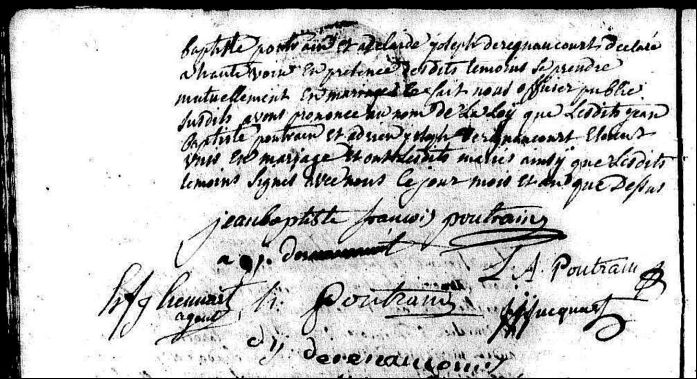 baptiste poutrain et adelaide joseph deregnaucourt declaré
a haute voix En presence desdits temoins se prendre
mutuellement En mariage Ce fait nous officier public
susdits avons prononcé au nom de La Loÿ que Lesdits jean
baptiste poutrain et adrien joseph deregnaucourt Etoient
unis En mariage et ont Lesdits mariés ainsÿ que Lesdits
temoins signés avec nous Ce jour mois et an que Dessus
jean baptiste francois poutrain
a j
L. A. Poutrain
agent h. Poutrain
deregnaucourt